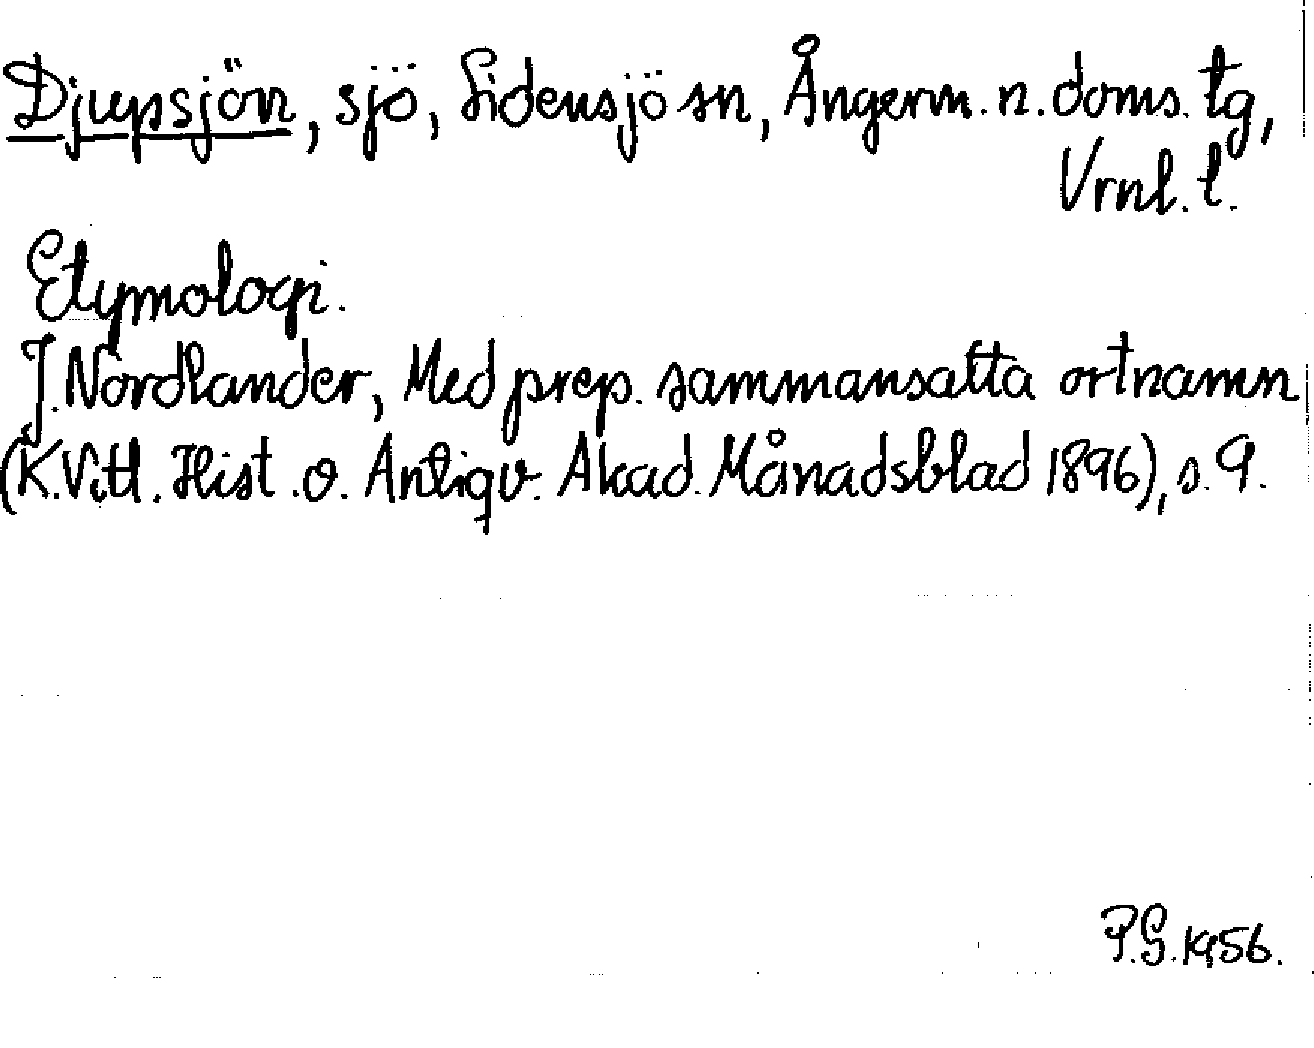 Djupsjön, sjö, Sidensjö sn, Ångerm. n. doms. tg,
Vrnl. l.
Etymologi.
J. Nordlander, Med prep. sammansatta ortnamn
(K. Vitt. Hist. o. Antiqv. Akad. Månadsblad 1896), s. 9.
P.G. 1956.